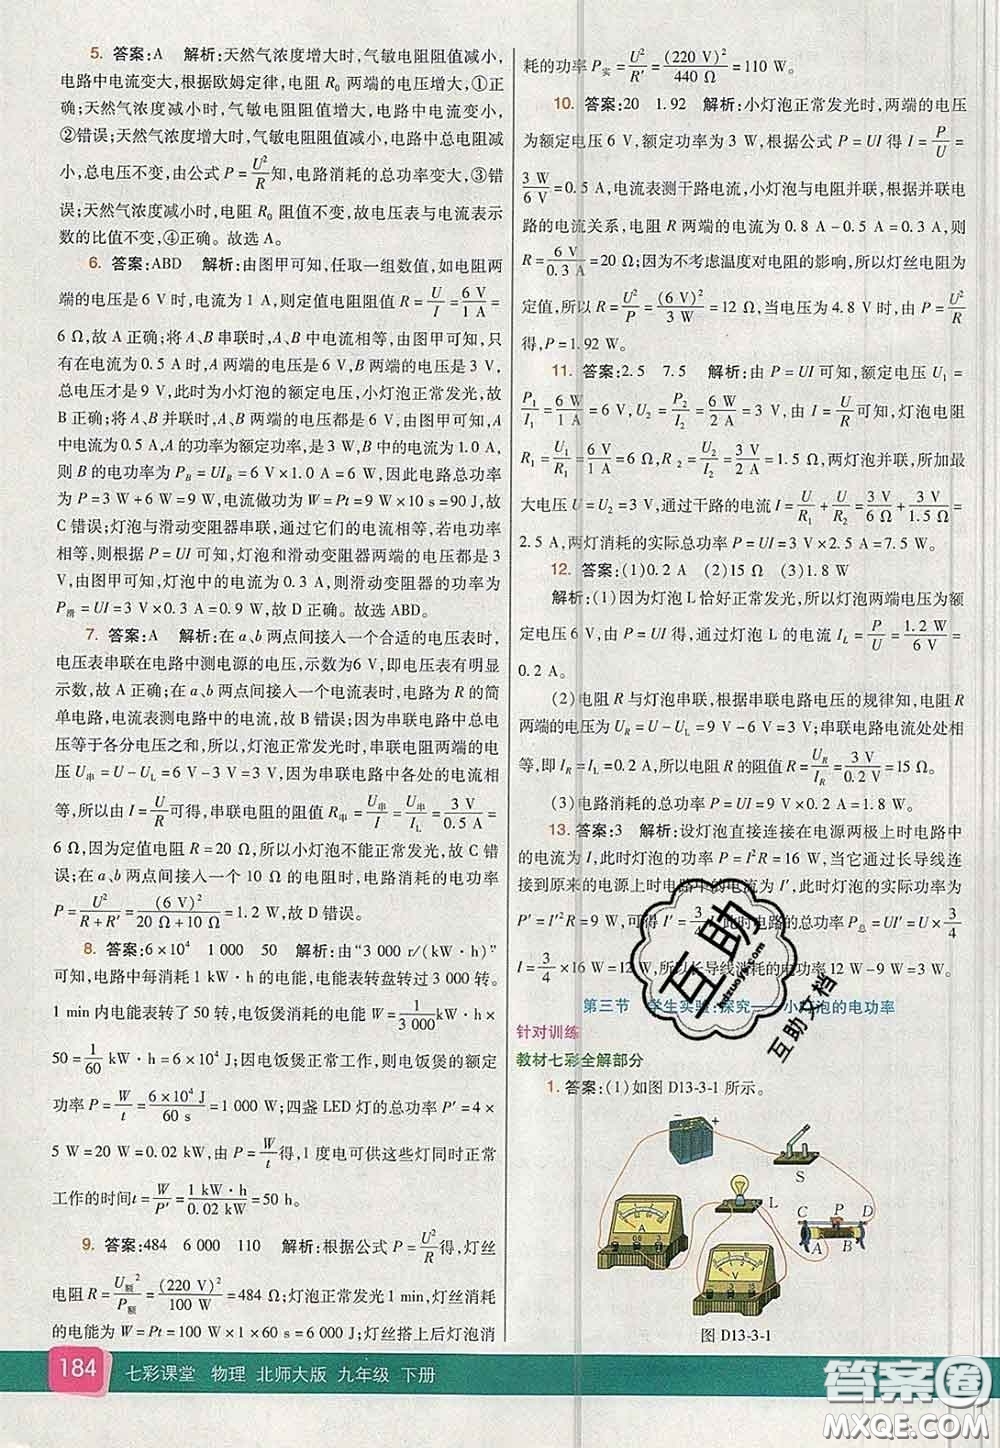 5. 答案:A 解析:天然气浓度增大时,气敏电阻阻值减小,
电路中电流变大,根据欧姆定律,电阻 R₀ 两端的电压增大,①正
确;天然气浓度减小时,气敏电阻阻值增大,电路中电流减小,
②错误;天然气浓度增大时,气敏电阻阻值减小,电路中总电阻减
小,总电压不变,由公式 P=U²/R知,电路消耗的总功率变大,③错
误;天然气浓度减小时,电阻 R₀ 阻值不变,故电压表与电流表示
数的比值不变,④正确。故选 A。
6. 答案:ABD 解析:由图甲可知,任取一组数值,如电阻两
端的电压是 6 V 时,电流为 1 A,则定值电阻阻值 R=U/I=6 V/1 A=
6 Ω,故 A 正确;将 A、B 串联时,A、B 中电流相等,由图甲可知,只
有在电流为 0.5 A 时,A 两端的电压是 6 V,B 两端的电压是 3 V,
总电压才是 9 V,此时为小灯泡的额定电压,小灯泡正常发光,故
B 正确;将 A、B 并联时,A、B 两端的电压都是 6 V,由图甲可知,A
中电流为0.5 A,A 的功率为额定功率,是 3 W,B 中电流为 1.0 A,
则 B 的电功率为 P_B=UI_B=6 V×1.0 A=6 W,因此电路总功率
为 3 W+6 W=9 W,电流做功为 W=Pt=9 W×10 s=90 J,故
C 错误;灯泡与滑动变阻器串联,通过它们的电流相等,若电功率
相等,则根据 P=UI 可知,灯泡和滑动变阻器两端的电压也相
等,由图甲可知,灯泡中的电流为 0.3 A,则滑动变阻器的功率为
P滑=UI=3 V×0.3 A=0.9 W,故 D 正确。故选 ABD。
7. 答案:A 解析:在 a、b 两点间接入一个合适的电压表时,
电压表串联在电路中测电源的电压,示数为6 V,即电压表有明显
示数,故 A 正确;在 a、b 两点间接入一个电流表时,电路为 R 的简
单电路,电流表测电路中的电流,故 B 错误;因为串联电路中总电
压等于各分电压之和,所以,灯泡正常发光时,串联电阻两端的电
压 U串=U−U_L=6 V−3 V=3 V,因为串联电路中各处的电流相
等,所以由 I=U/R可得,串联电阻的阻值 R串=U串/I=U串/I_L=3 V/0.5 A=
6 Ω,因为定值电阻为 20 Ω,所以小灯泡不能正常发光,故 C 错误;
在 a、b 两点间接入一个 10 Ω 的电阻时,电路消耗的电功率
P=U²/(R+R′)=(6 V)²/(20 Ω+10 Ω)=1.2 W,故 D 错误。
8. 答案:6×10⁴ 1 000 50 解析:由“3 000 r/(kW·h)”
可知,电路中每消耗 1 kW·h 的电能,电能表转盘转过 3 000 转。
1 min 内电能表转了 50 转,电饭煲消耗的电能 W=1/3 000 kW·h×50=
1/60 kW·h=6×10⁴ J;因电饭煲正常工作,所以,电饭煲的额定
功率 P=W/t=6×10⁴ J/60 s=1 000 W;四盏 LED 灯的总功率 P′=4×
5 W=20 W=0.02 kW,由 P=W/t可得,1 度电可使这些灯同时正常
工作的时间t=W/P′=1 kW·h/0.02 kW=50 h。
9. 答案:484 6 000 110 解析:根据公式 P=U²/R得,灯丝
电阻 R=U额²/P额=(220 V)²/100 W=484 Ω;灯泡正常发光 1 min,灯丝消耗
的电能为 W=Pt=100 W×1×60 s=6 000 J;灯丝搭上后灯泡消
耗的功率 P实=U²/R′=(220 V)²/440 Ω=110 W。
10. 答案:20 1.92 解析:小灯泡正常发光时,两端的电压
为额定电压 6 V,额定功率为 3 W,根据公式 P=UI 得 I=P/U=
3 W/6 V=0.5 A,电流表测干路电流,小灯泡与电阻并联,根据并联电
路的电流关系,电阻 R 两端的电流为 0.8 A−0.5 A=0.3 A,电阻
R=6 V/0.3 A=20 Ω;因为不考虑温度对电阻的影响,所以灯丝电阻为
定值,所以 R=U²/P=(6 V)²/3 W=12 Ω,当电压为 4.8 V 时,由 P=U²/R得
P=1.92 W。
11. 答案:2.5 7.5 解析:由 P=UI 可知,额定电压 U₁=
P₁/I₁=6 W/1 A=6 V,U₂=P₂/I₂=6 W/2 A=3 V,由 I=U/R可知,灯泡电阻
R₁=U₁/R₁=6 V/1 A=6 Ω,R₂=U₂/I₂=3 V/2 A=1.5 Ω,两灯泡并联,所加最
大电压 U=3 V,通过干路的电流 I=U/R₁+U/R₂=3 V/6 Ω+3 V/1.5 Ω=
2.5 A,两灯消耗的实际总功率 P=UI=3 V×2.5 A=7.5 W。
12. 答案:(1)0.2 A (2)15 Ω (3)1.8 W
解析:(1)因为灯泡 L 恰好正常发光,所以灯泡两端电压为额
定电压 6 V,由 P=UI 得,通过灯泡 L 的电流 I_L=P/U=1.2 W/6 V=
0.2 A。
(2)电阻 R 与灯泡串联,根据串联电路电压的规律知,电阻 R
两端的电压为 U_R=U−U_L=9 V−6 V=3 V;串联电路电流处处相
等,即 I_R=I_L=0.2 A,所以电阻 R 的阻值 U_R/I_R=3 V/0.2 V=15 Ω。
(3)电路消耗的总功率 P=UI=9 V×0.2 A=1.8 W。
13. 答案:3 解析:设灯泡直接连接在电源两极上时电路中
的电流为 I,此时灯泡的功率 P=I²R=16 W,当它通过长导线连
接到原来的电源上时电路中的电流为 I′,此时灯泡的实际功率
P′=I′²R=9 W,可得 I′=3/4 I,此时电路的总功率 P总=UI′=U×3/4
I=3/4×16 W=12 W,所以长导线消耗的电功率为12 W−9 W=3 W。
第三节 学生实验:探究——小灯泡的电功率
针对训练
教材七彩全解部分
1. 答案:(1)如图 D13-3-1 所示。
− +
S
L
C P D
A B
A
V
图 D13-3-1
184 七彩课堂 物理 北师大版 九年级 下册
互助
互助文档
答案圈
MXQE.COM